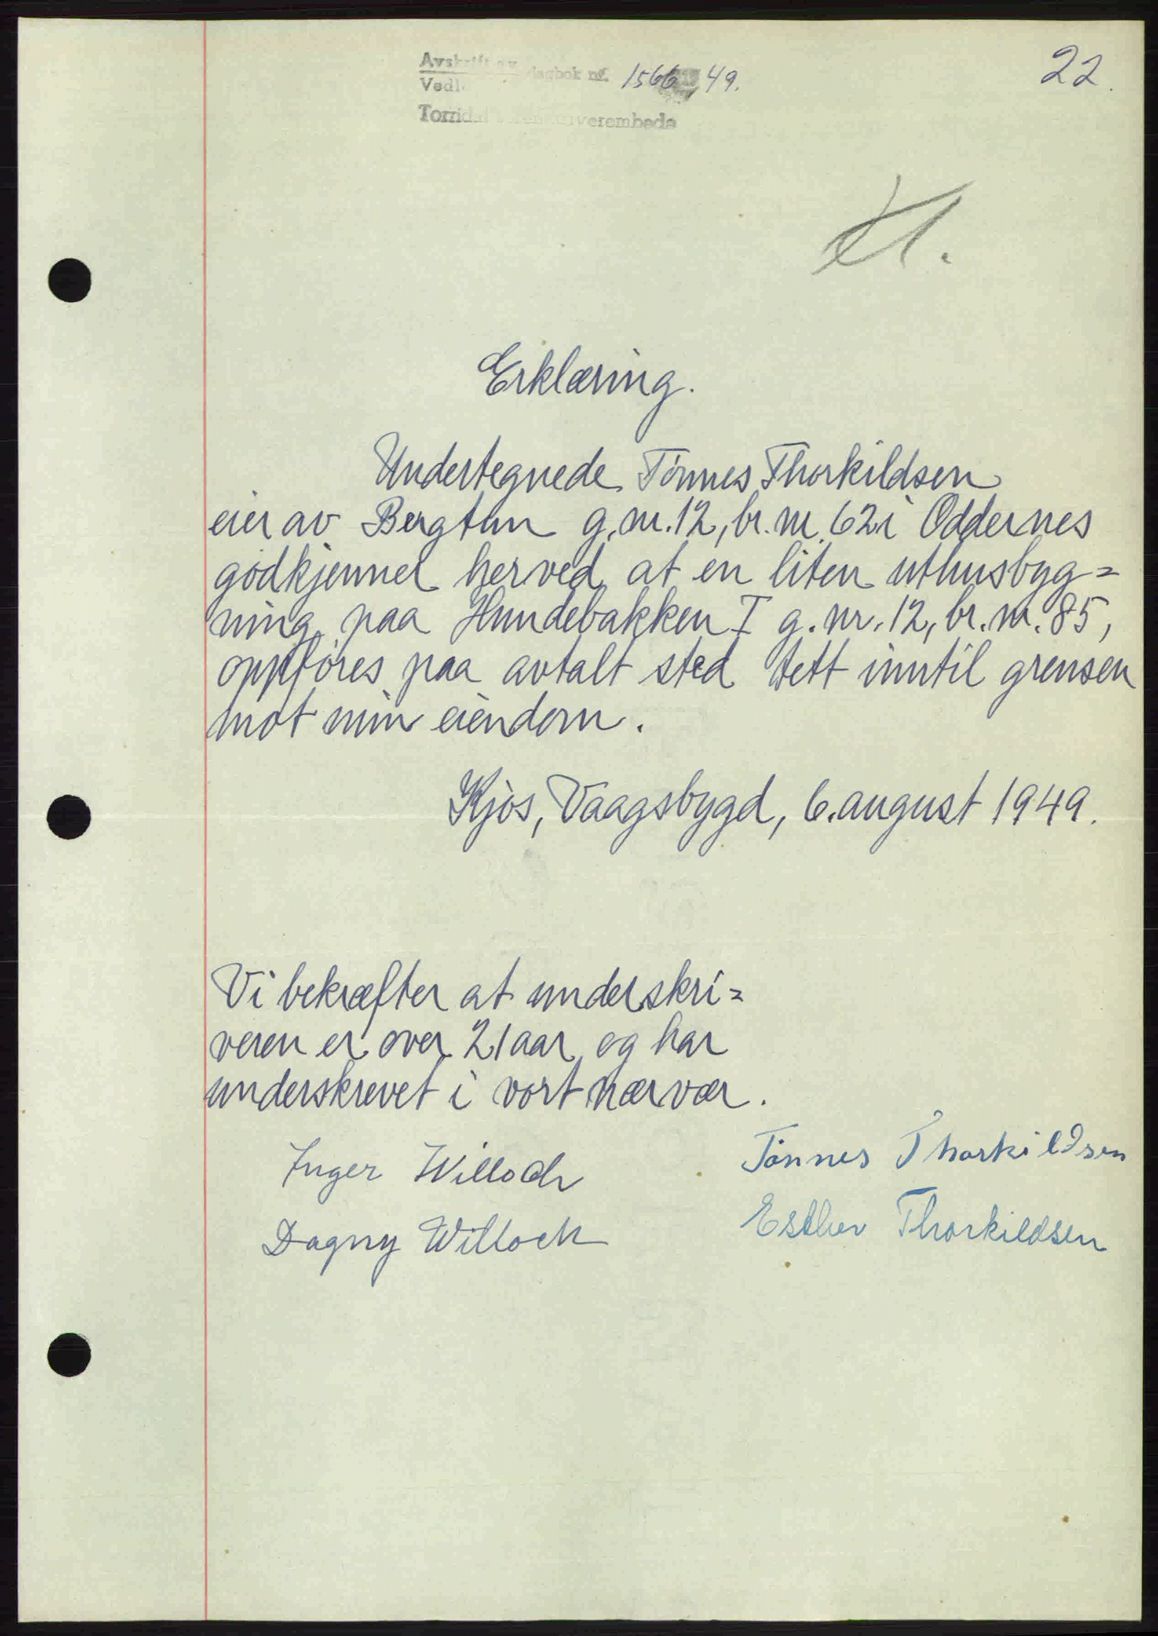 Avskrift av dagbok nr. 1566/49.
22.
Vedl.
Torridal sorenskriverembede
Kl.
Erklæring.
Undertegnede Tönnes Thorkildsen
eier av Bergtun g.nr. 12, br. nr. 62 i Oddernes
godkjenner herved at en liten uthusbyg=
ning paa Hundebakken I g. nr. 12, br. nr. 85,
oppföres paa avtalt sted tett inntil grensen
mot min eiendom.
Kjos, Vaagsbygd, 6. august 1949.
Vi bekræfter at underskri=
veren er over 21 aar og har
underskrevet i vort nærvær.
Inger Willoch
Tönnes Thorkildsen
Dagny Willoch
Esther Thorkildsen